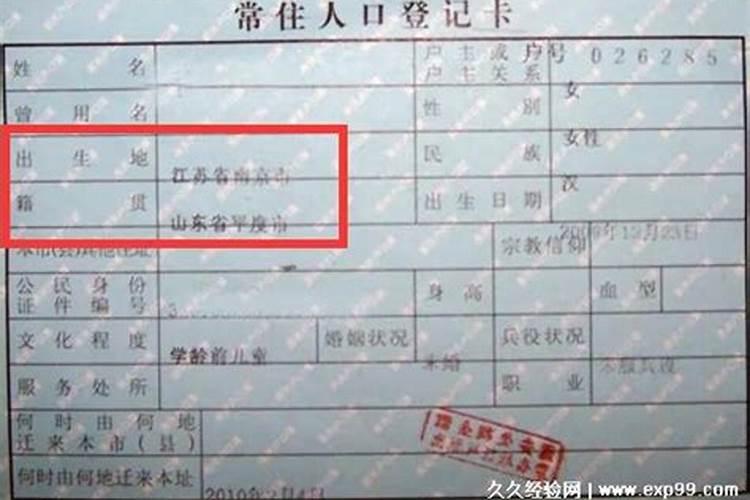 常住人口登记卡
姓名 户主或与 户号 026285
户主关系
女
曾用名 性别
女性
出生地 江苏省南京市 民族
汉
籍贯 山东省平度市 出生日期
2009年12月23日
本市(县)其他住址 宗教信仰
公民身份
证件编号 3 身高 血型
文化程度 学龄前儿童 婚姻状况 未婚 兵役状况 未服兵役
服务处所 职业
何时由何地
迁来本市(县)
何时由何地迁来本址 2010年2月4日
久久经验网/www.exp99.com